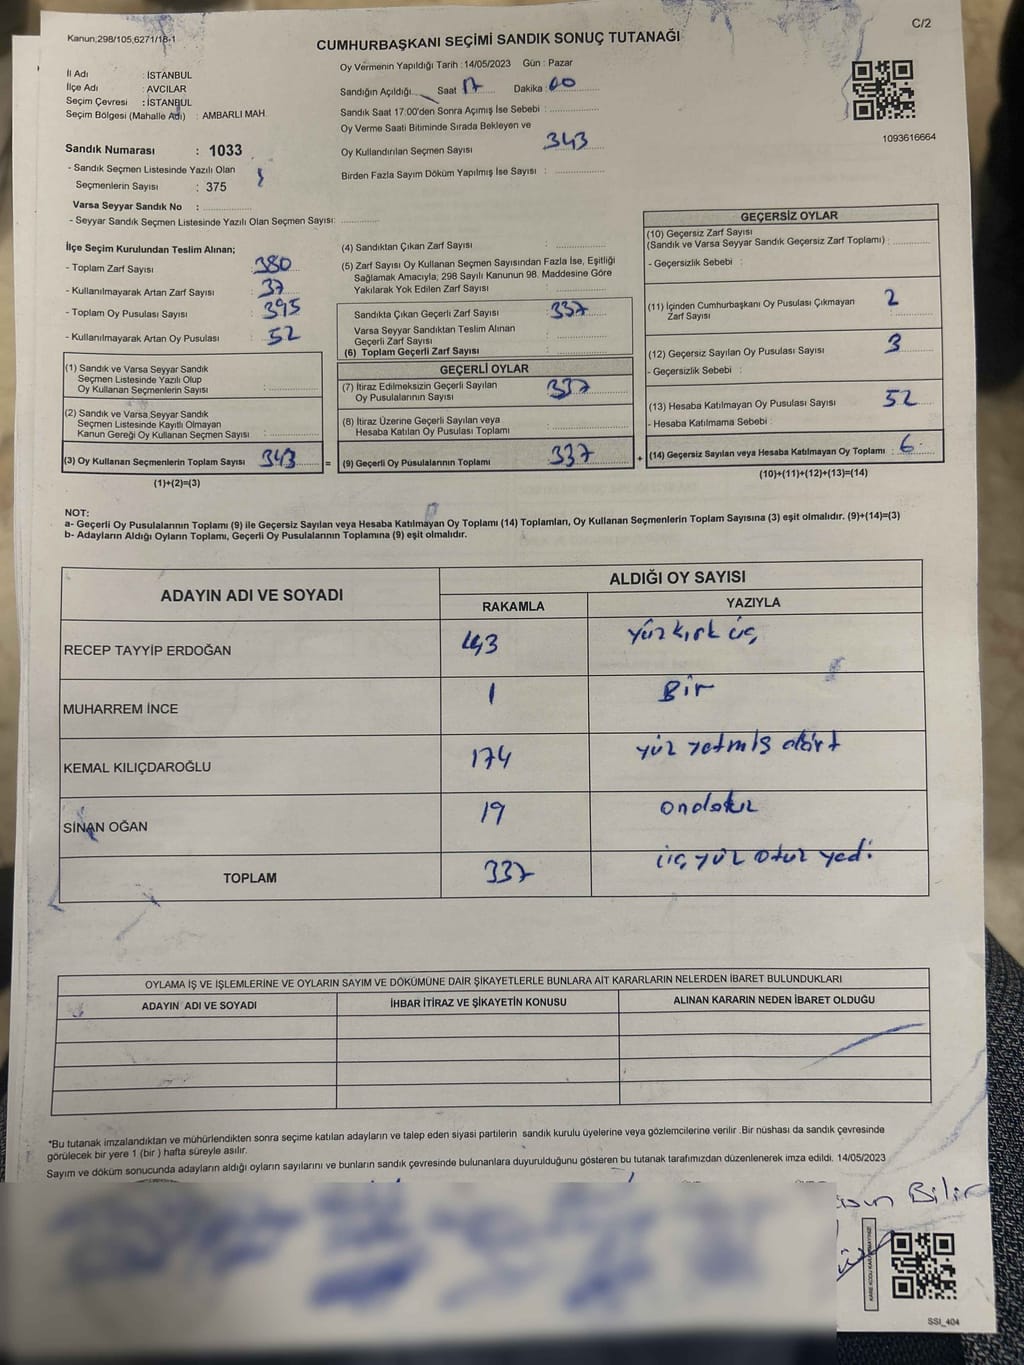 C/2
Kanun;298/105,6271/18-1
CUMHURBAŞKANI SEÇİMİ SANDIK SONUÇ TUTANAĞI
İl Adı : İSTANBUL
İlçe Adı : AVCILAR
Seçim Çevresi : İSTANBUL
Seçim Bölgesi (Mahalle Adı) : AMBARLI MAH.
Oy Vermenin Yapıldığı Tarih : 14/05/2023 Gün : Pazar
Sandığın Açıldığı Saat 17 Dakika : 00
Sandık Saat 17:00'den Sonra Açımış İse Sebebi :
Oy Verme Saati Bitiminde Sırada Bekleyen ve
Oy Kullandırılan Seçmen Sayısı : 343
Birden Fazla Sayım Döküm Yapılmış İse Sayısı :
1093616664
Sandık Numarası : 1033
- Sandık Seçmen Listesinde Yazılı Olan
Seçmenlerin Sayısı : 375
Varsa Seyyar Sandık No :
- Seyyar Sandık Seçmen Listesinde Yazılı Olan Seçmen Sayısı:
İlçe Seçim Kurulundan Teslim Alınan;
- Toplam Zarf Sayısı : 380
- Kullanılmayarak Artan Zarf Sayısı : 37
- Toplam Oy Pusulası Sayısı : 395
- Kullanılmayarak Artan Oy Pusulası : 52
(1) Sandık ve Varsa Seyyar Sandık
Seçmen Listesinde Yazılı Olup
Oy Kullanan Seçmenlerin Sayısı :
(2) Sandık ve Varsa Seyyar Sandık
Seçmen Listesinde Kayıtlı Olmayan
Kanun Gereği Oy Kullanan Seçmen Sayısı :
(3) Oy Kullanan Seçmenlerin Toplam Sayısı : 343 =
(1)+(2)=(3)
(4) Sandıktan Çıkan Zarf Sayısı :
(5) Zarf Sayısı Oy Kullanan Seçmen Sayısından Fazla İse, Eşitliği
Sağlamak Amacıyla; 298 Sayılı Kanunun 98. Maddesine Göre
Yakılarak Yok Edilen Zarf Sayısı :
Sandıkta Çıkan Geçerli Zarf Sayısı : 337
Varsa Seyyar Sandıktan Teslim Alınan
Geçerli Zarf Sayısı :
(6) Toplam Geçerli Zarf Sayısı :
GEÇERLİ OYLAR
(7) İtiraz Edilmeksizin Geçerli Sayılan
Oy Pusulalarının Sayısı : 337
(8) İtiraz Üzerine Geçerli Sayılan veya
Hesaba Katılan Oy Pusulası Toplamı :
(9) Geçerli Oy Pusulalarının Toplamı : 337 +
GEÇERSİZ OYLAR
(10) Geçersiz Zarf Sayısı
(Sandık ve Varsa Seyyar Sandık Geçersiz Zarf Toplamı) :
- Geçersizlik Sebebi :
(11) İçinden Cumhurbaşkanı Oy Pusulası Çıkmayan
Zarf Sayısı : 2
(12) Geçersiz Sayılan Oy Pusulası Sayısı : 3
- Geçersizlik Sebebi :
(13) Hesaba Katılmayan Oy Pusulası Sayısı : 52
- Hesaba Katılmama Sebebi :
(14) Geçersiz Sayılan veya Hesaba Katılmayan Oy Toplamı : 6
(10)+(11)+(12)+(13)=(14)
NOT:
a- Geçerli Oy Pusulalarının Toplamı (9) ile Geçersiz Sayılan veya Hesaba Katılmayan Oy Toplamı (14) Toplamları, Oy Kullanan Seçmenlerin Toplam Sayısına (3) eşit olmalıdır. (9)+(14)=(3)
b- Adayların Aldığı Oyların Toplamı, Geçerli Oy Pusulalarının Toplamına (9) eşit olmalıdır.
ADAYIN ADI VE SOYADI
ALDIĞI OY SAYISI
RAKAMLA YAZIYLA
RECEP TAYYİP ERDOĞAN 143 yüz kırk üç
MUHARREM İNCE 1 Bir
KEMAL KILIÇDAROĞLU 174 yüz yetmiş dört
SİNAN OĞAN 19 ondokuz
TOPLAM 337 üç yüz otuz yedi
OYLAMA İŞ VE İŞLEMLERİNE VE OYLARIN SAYIM VE DÖKÜMÜNE DAİR ŞİKAYETLERLE BUNLARA AİT KARARLARIN NELERDEN İBARET BULUNDUKLARI
ADAYIN ADI VE SOYADI İHBAR İTİRAZ VE ŞİKAYETİN KONUSU ALINAN KARARIN NEDEN İBARET OLDUĞU
*Bu tutanak imzalandıktan ve mühürlendikten sonra seçime katılan adayların ve talep eden siyasi partilerin sandık kurulu üyelerine veya gözlemcilerine verilir .Bir nüshası da sandık çevresinde
görülecek bir yere 1 (bir ) hafta süreyle asılır.
Sayım ve döküm sonucunda adayların aldığı oyların sayılarını ve bunların sandık çevresinde bulunanlara duyurulduğunu gösteren bu tutanak tarafımızdan düzenlenerek imza edildi. 14/05/2023
Bilir
SSI_404